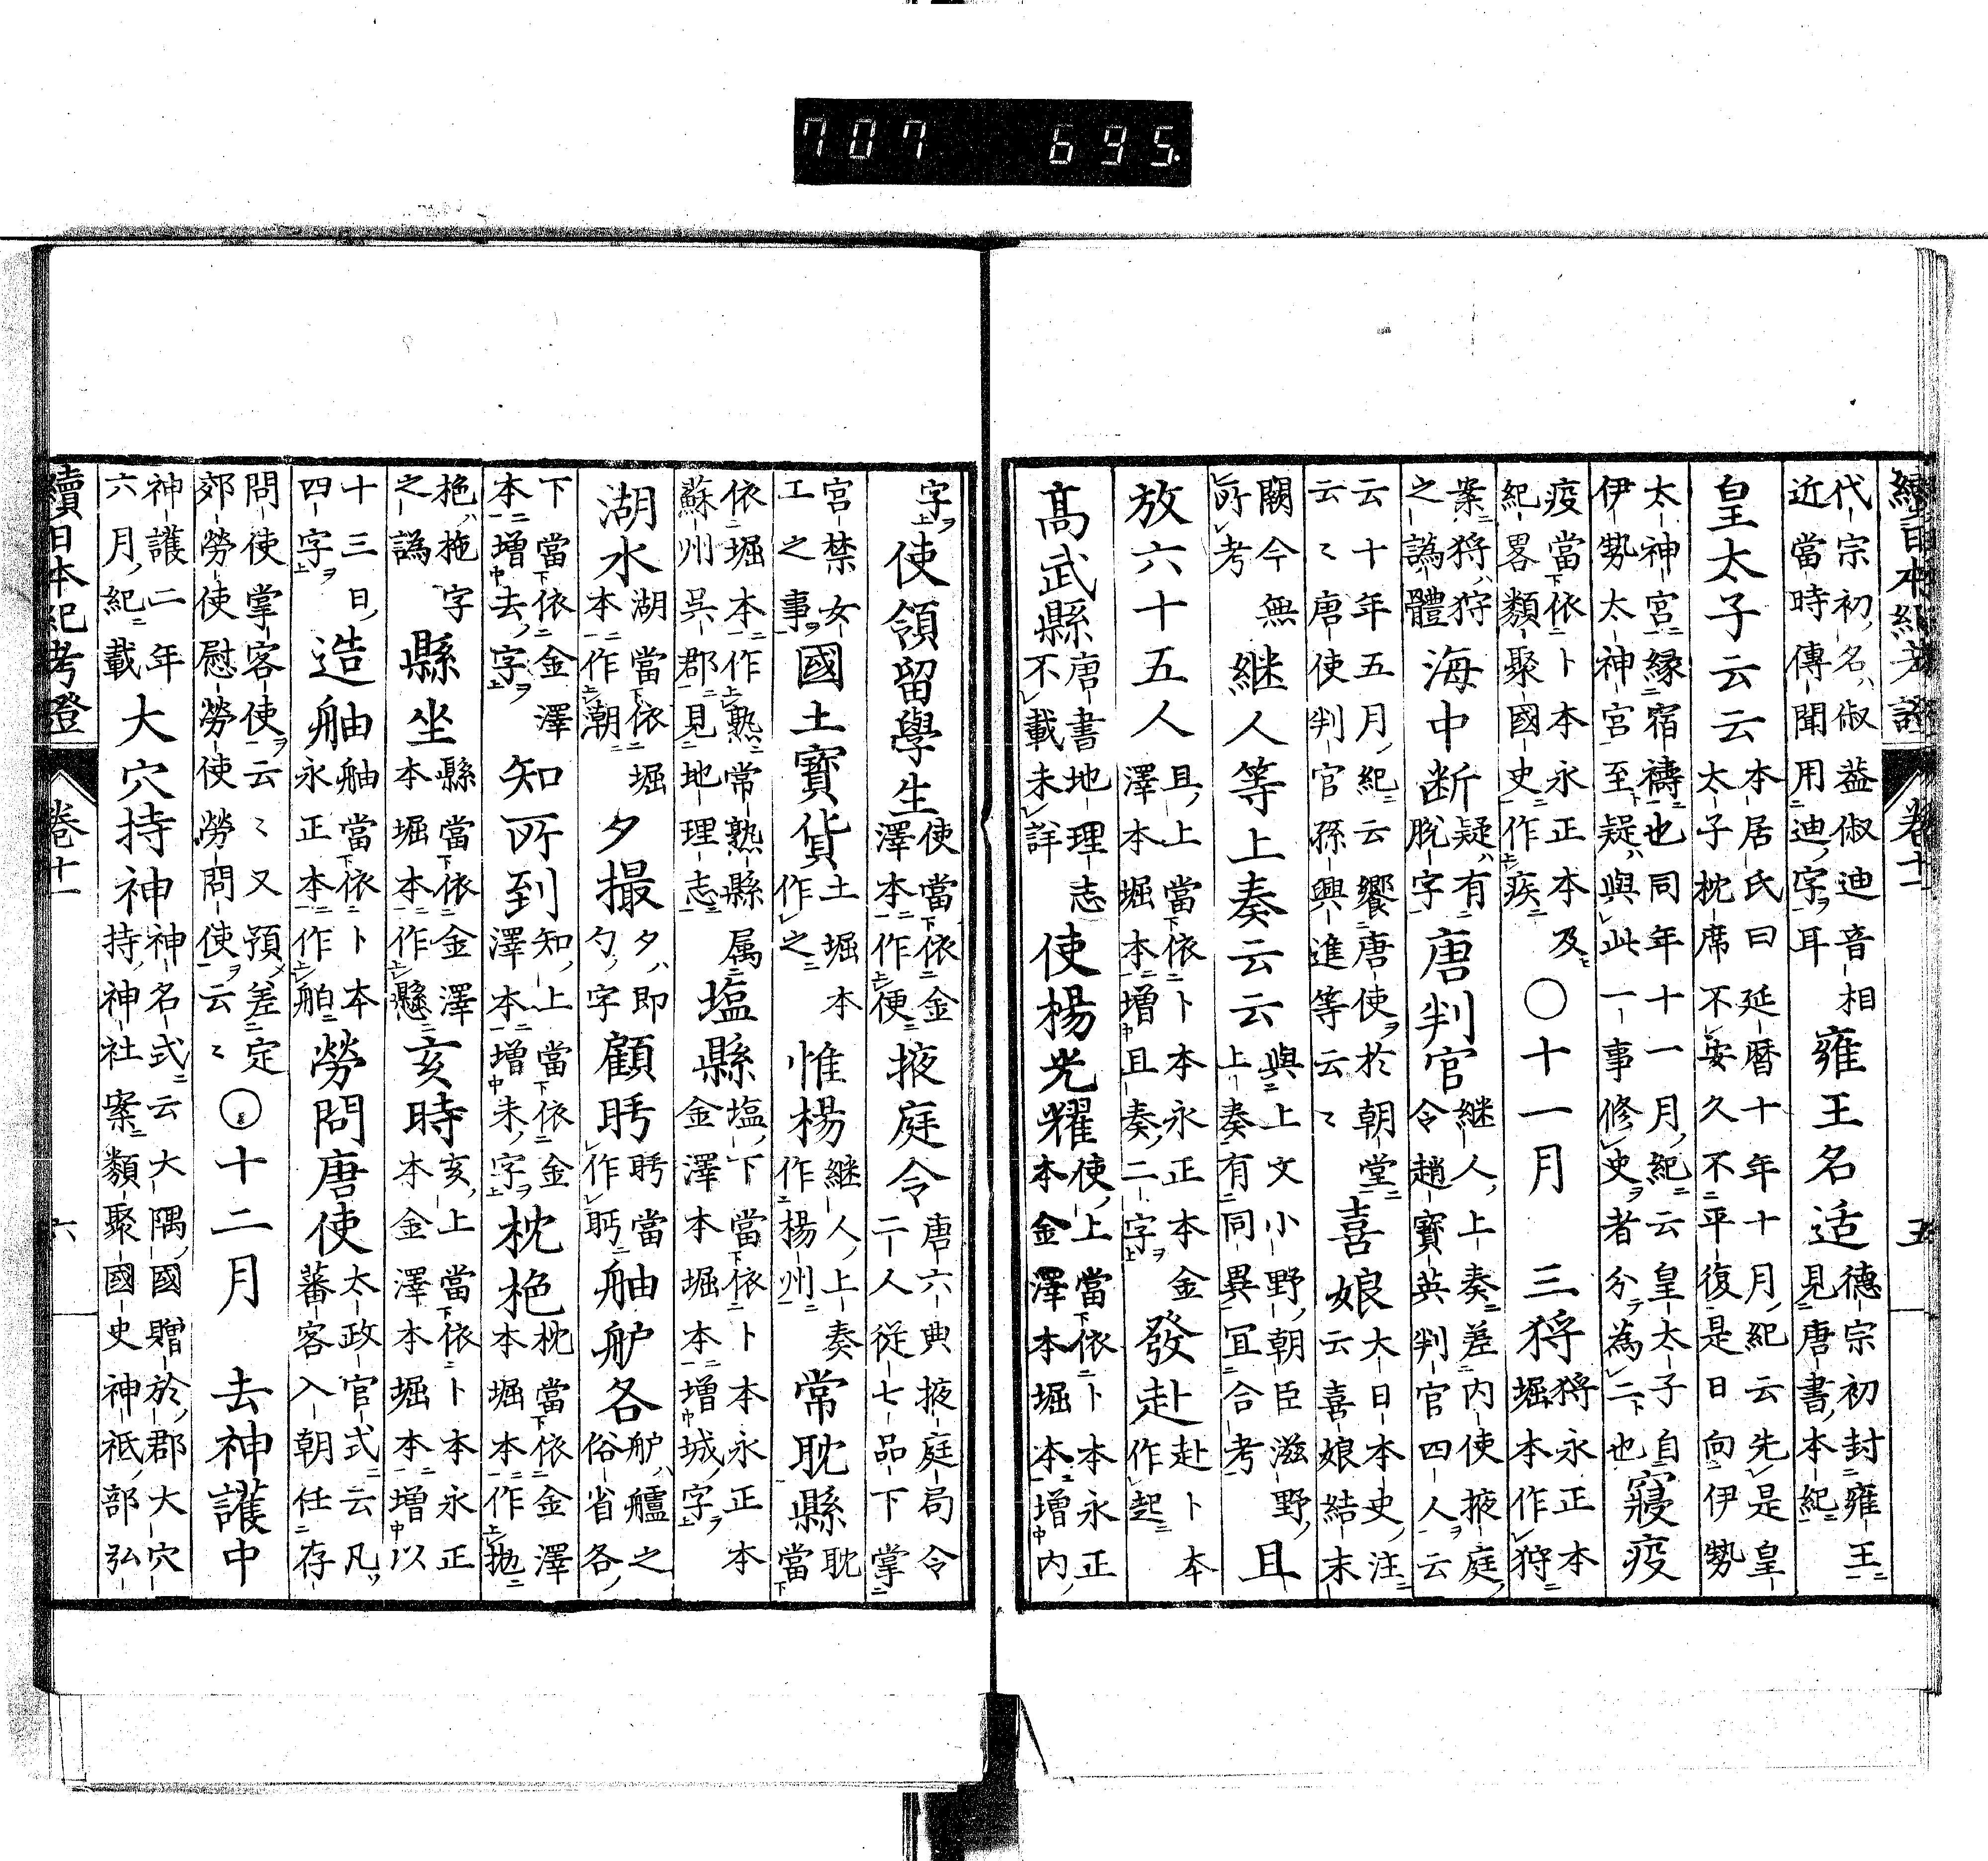 707 695.
續日本紀考證 卷十一 五
代宗初名俶蓋俶迪音相
近當時傳聞用迪字耳
雍王名适
德宗初封雍王
見唐書本紀
皇太子云云
本居氏曰延暦十年十月紀云先是皇
太子枕席不安久不平復是日向伊勢
太神宮縁宿禱也同年十一月紀云皇太子自
伊勢太神宮至疑與此一事修史者分為二也
寢疫
疫當依卜本永正本及
紀畧類聚國史作疾
○十一月
三㹡
㹡永正本
堀本作狩
案㹡狩
之譌體
海中断
疑有
脫字
唐判官
継人上奏差内使掖庭
令趙寶英判官四人云
云十年五月紀云饗唐使於朝堂
云々唐使判官孫興進等云々
喜娘
大日本史注
云喜娘結末
闕今無
所考
継人等上奏云云
與上文小野朝臣滋野
上奏有同異宜合考
且
放六十五人
且上當依卜本永正本金
澤本堀本増且奏二字
發赴
赴卜本
作起
髙武縣
唐書地理志
不載未詳
使楊光耀
使上當依卜本永正
本金澤本堀本増内
字
使領留學生
使當依金
澤本作便
掖庭令
唐六典掖庭局令
二人從七品下掌
宮禁女
工之事
國土寶貨
土堀本
作之
惟楊
継人上奏
作楊州
常耽縣
耽
當
依堀本作熟常熟縣属
蘇州吳郡見地理志
塩縣
塩下當依卜本永正本
金澤本堀本増城字
湖水
湖當依堀
本作潮
夕撮
夕即
勺字
顧眄
眄當
作眄
舳舮各
舮艫之
俗省各
下當依金澤
本増去字
知所到
知上當依金
澤本増未字
枕𣑊
枕當依金澤
本堀本作拋
𣑊拖字
之譌
縣坐
縣當依金澤
本堀本作懸
亥時
亥上當依卜本永正
本金澤本堀本増以
十三日
四字
造舳
舳當依卜本
永正本作舶
勞問唐使
太政官式云凡
蕃客入朝任存
問使掌客使云々又預差定
郊勞使慰勞使勞問使云々
○十二月
去神護中
神護二年
六月紀載
大穴持神
神名式云大隅國贈於郡大穴
持神社案類聚國史神祇部弘
續日本紀考證 卷十一 六